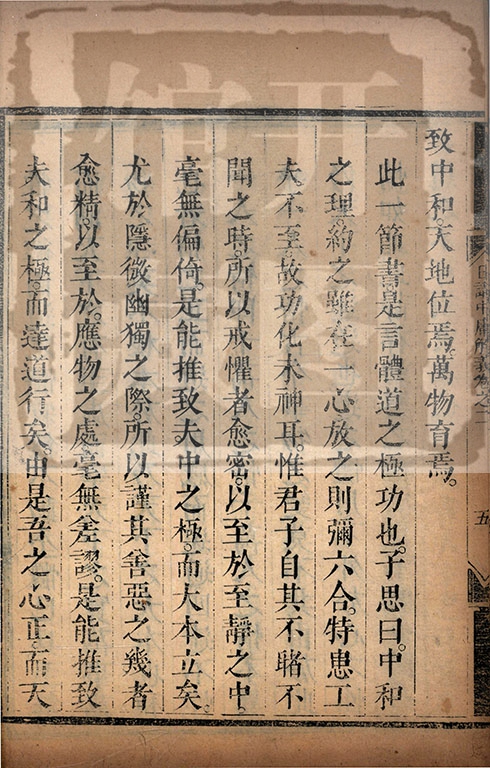 致中和。天地位焉。萬物育焉。
此一節書是言體道之極功也。子思曰。中和
之理。約之雖在一心。放之則彌六合。特患工
夫不至。故功化未神耳。惟君子自其不睹不
聞之時。所以戒懼者愈密。以至於至靜之中。
毫無偏倚。是能推致夫中之極。而大本立矣。
尤於隱微幽獨之際。所以謹其善惡之幾者
愈精。以至於應物之處。毫無差謬。是能推致
夫和之極。而達道行矣。由是吾之心正。而天
五